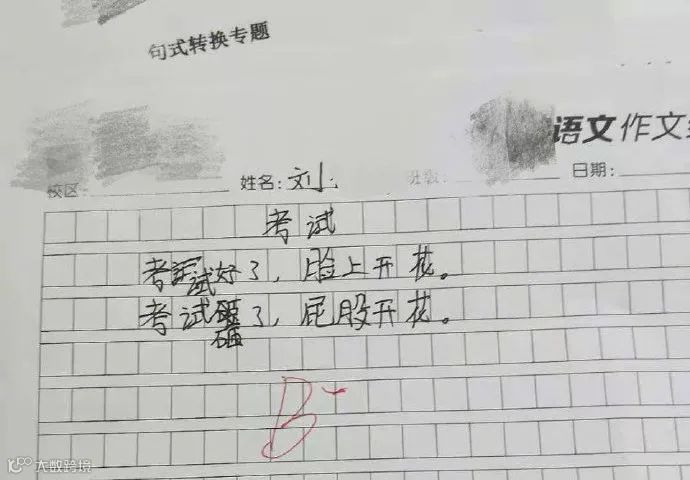 句式转换专题
语文作文
校区: 姓名:刘小 班级: 日期:
考试
考试好了,脸上开花。
考试砸了,屁股开花。
B+
大数跨境